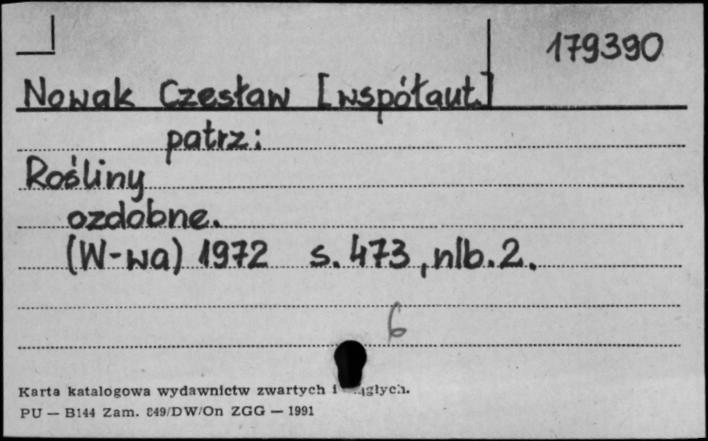 179390
Nowak Czesław [współaut.]
patrz:
Rośliny
ozdobne.
(W-wa) 1972 s. 473, nlb. 2.
6
Karta katalogowa wydawnictw zwartych i
PU — B144 Zam. 849/DW/On ZGG — 1991